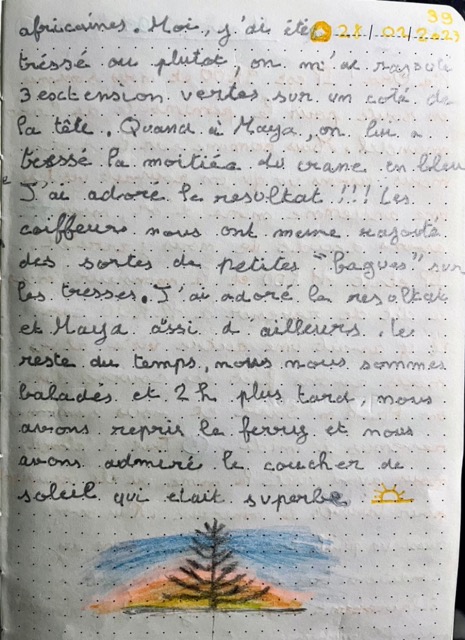 39
28/01/2023
africaines. Moi, j'ai étée
tréssé ou plutot, on m'a rajouté
3 eoctension vertes sur un coté de
la tête. Quand à Maya, on lui a
tréssé la moitiée du crane en bleu
J'ai adoré le resultat !!! Les
coiffeurs nous ont meme rajouté
des sortes de petites "bagues" sur
les tresses. J'ai adoré le resultat
et Maya aussi d'ailleurs. le
reste du temps, nous nous sommes
baladés et 2h plus tard, nous
avons repris le ferry et nous
avons admiré le coucher de
soleil qui était superbe